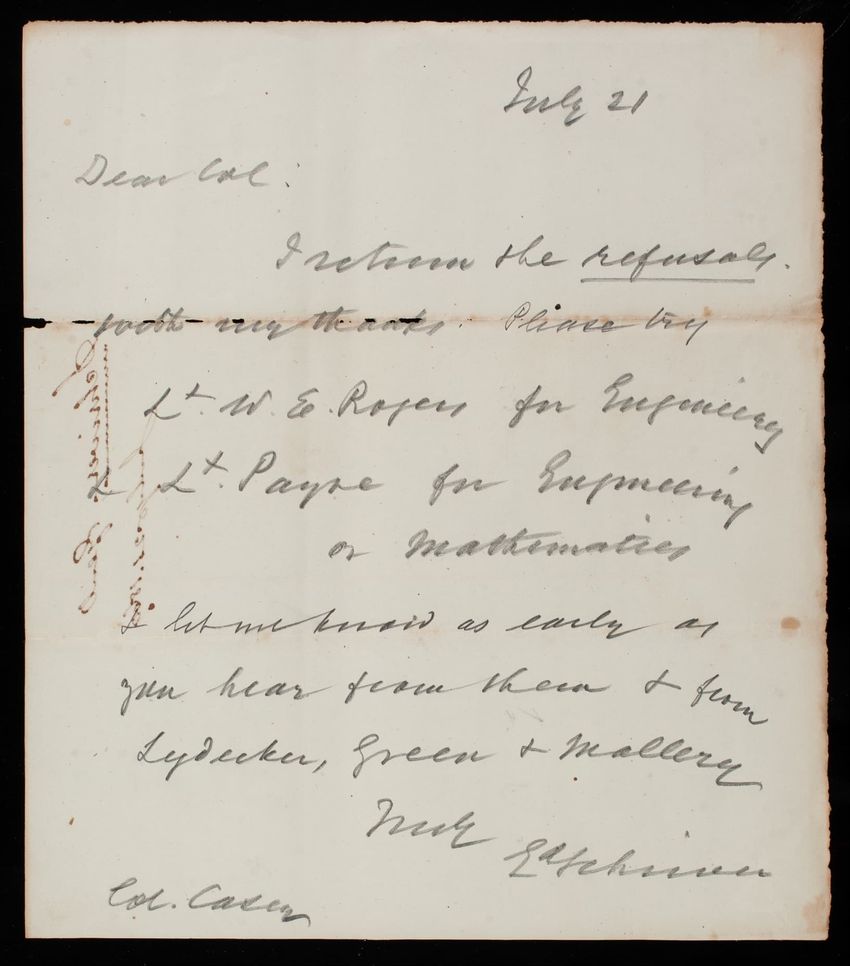 July 21
Dear Col:
I return the refusals.
with my thanks. Please try
Lt. W. E. Rogers for Engineering
& Lt. Payne for Engineering
or Mathematics
& let me know as early as
you hear from them & from
Lydecker, Green & Mallery
Truly
Ed Schriver
Col. Casey